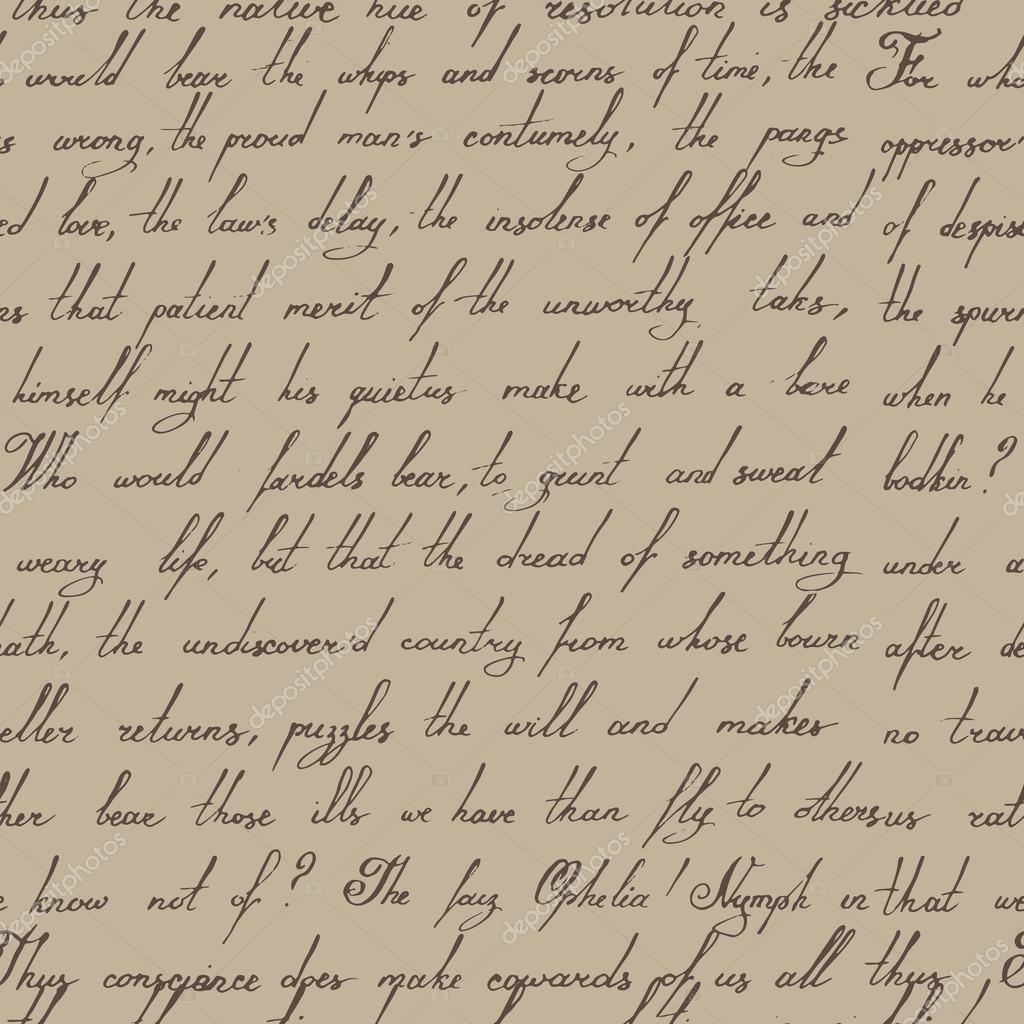 thus the native hue of resolution is sicklied
would bear the whips and scorns of time, the For who
s wrong, the proud man's contumely, the pangs oppressor'
ed love, the law's delay, the insolense of office and of despise
ns that patient merit of the unworthy taks, the spurn
himself might his quietus make with a bare when he
Who would fardels bear, to grunt and sweat bodkin?
weary life, but that the dread of something under a
eath, the undiscover'd country from whose bourn after de
eller returns, puzzles the will and makes no trav
ther bear those ills we have than fly to othersus rat
e know not of? The faiz Ophelia! Nymph in that we
Thus conscience does make cowards of us all thus
depositphotos